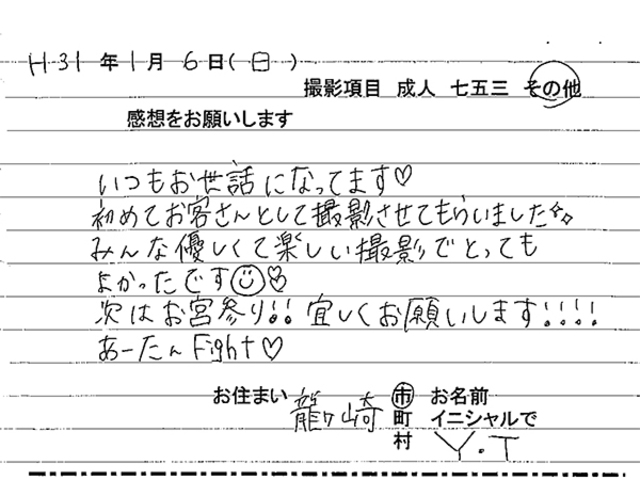 H31年1月6日(日)
撮影項目 成人 七五三 その他
感想をお願いします
いつもお世話になってます♡
初めてお客さんとして撮影させてもらいました✧✧
みんな優しくて楽しい撮影でとっても
よかったです☺♡
次はお宮参り!! 宜しくお願いします!!!!
あーたん Fight♡
お住まい 龍ヶ崎 市 お名前
町 イニシャルで
村 Y.T